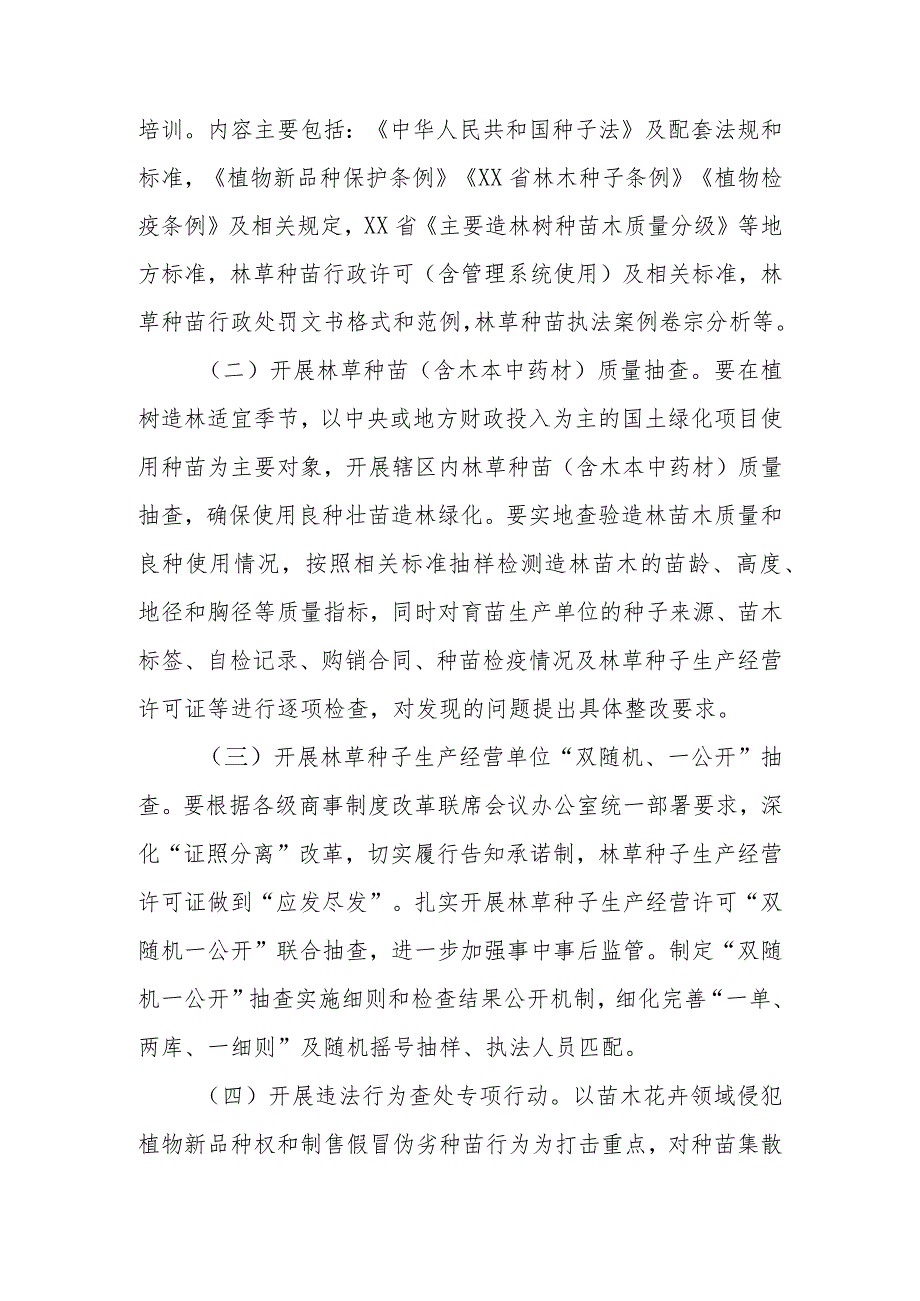 培训。内容主要包括：《中华人民共和国种子法》及配套法规和
标准，《植物新品种保护条例》《XX 省林木种子条例》《植物检
疫条例》及相关规定，XX 省《主要造林树种苗木质量分级》等地
方标准，林草种苗行政许可（含管理系统使用）及相关标准，林
草种苗行政处罚文书格式和范例，林草种苗执法案例卷宗分析等。
（二）开展林草种苗（含木本中药材）质量抽查。要在植
树造林适宜季节，以中央或地方财政投入为主的国土绿化项目使
用种苗为主要对象，开展辖区内林草种苗（含木本中药材）质量
抽查，确保使用良种壮苗造林绿化。要实地查验造林苗木质量和
良种使用情况，按照相关标准抽样检测造林苗木的苗龄、高度、
地径和胸径等质量指标，同时对育苗生产单位的种子来源、苗木
标签、自检记录、购销合同、种苗检疫情况及林草种子生产经营
许可证等进行逐项检查，对发现的问题提出具体整改要求。
（三）开展林草种子生产经营单位“双随机、一公开”抽
查。要根据各级商事制度改革联席会议办公室统一部署要求，深
化“证照分离”改革，切实履行告知承诺制，林草种子生产经营
许可证做到“应发尽发”。扎实开展林草种子生产经营许可“双
随机一公开”联合抽查，进一步加强事中事后监管。制定“双随
机一公开”抽查实施细则和检查结果公开机制，细化完善“一单、
两库、一细则”及随机摇号抽样、执法人员匹配。
（四）开展违法行为查处专项行动。以苗木花卉领域侵犯
植物新品种权和制售假冒伪劣种苗行为为打击重点，对种苗集散